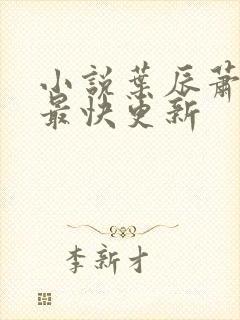 小說葉辰蕭
最快更新
李新才